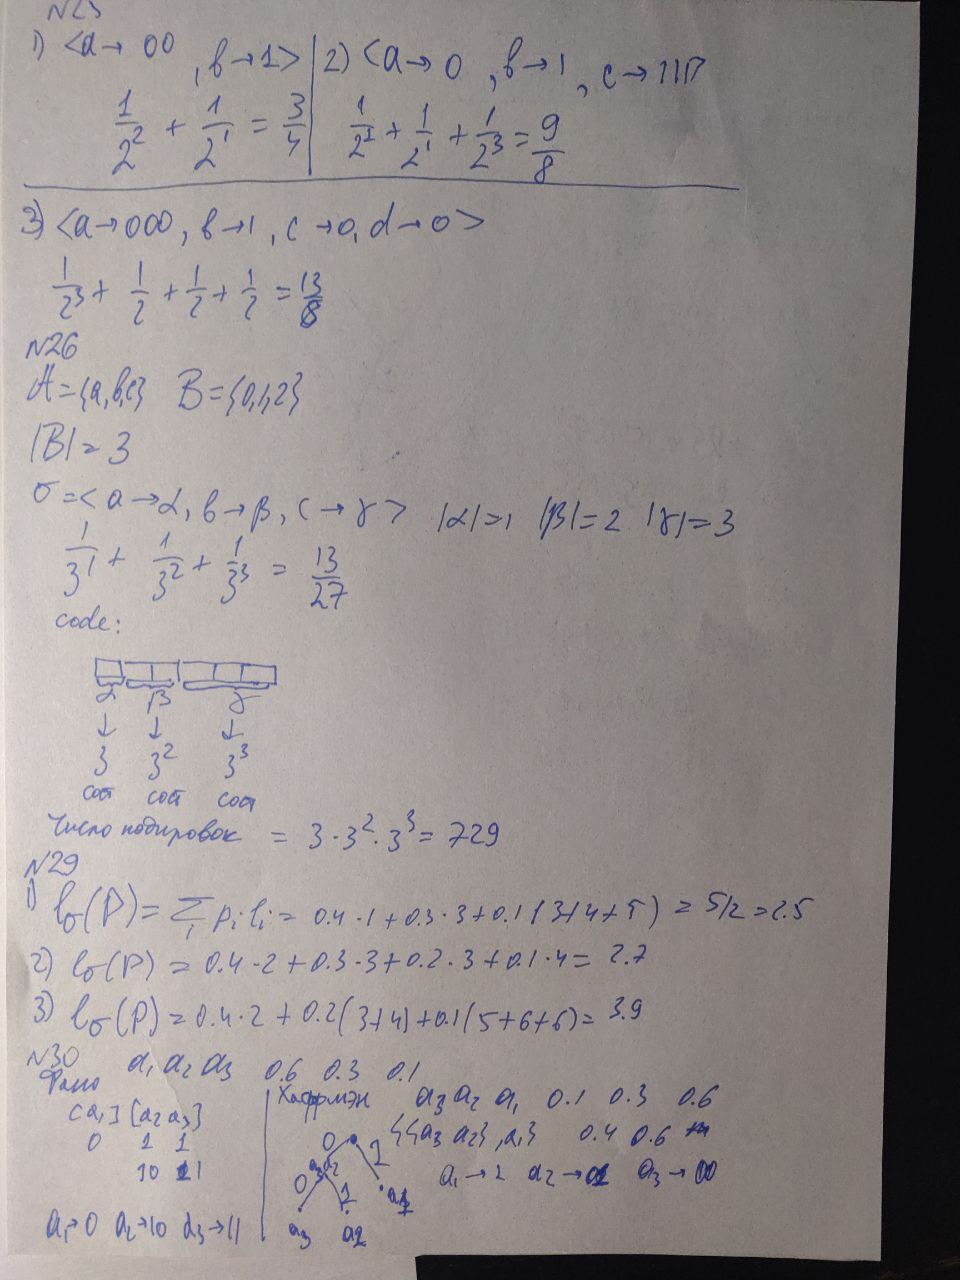 N23
1) <a→00, b→1> | 2) <a→0, b→1, c→110
1/2² + 1/2¹ = 3/4 | 1/2¹ + 1/2¹ + 1/2³ = 9/8
3) <a→000, b→1, c→0, d→0>
1/2³ + 1/2 + 1/2 + 1/2 = 13/8
N26
A={a,b,c} B={0,1,2}
|B| = 3
σ=<a→α, b→β, c→γ> |α|=1 |β|=2 |γ|=3
1/3¹ + 1/3² + 1/3³ = 13/27
code:
α β γ
↓ ↓ ↓
3 3² 3³
сост сост сост
Число кодировок = 3·3²·3³ = 729
N29
1) lσ(P) = Σi pi·li = 0.4·1+0.3·3+0.1(3+4+5) = 5/2 = 2.5
2) lσ(P) = 0.4·2+0.3·3+0.2·3+0.1·4 = 2.7
3) lσ(P) = 0.4·2+0.2(3+4)+0.1(5+6+6) = 3.9
N30 a₁ a₂ a₃ 0.6 0.3 0.1
Фано
[a₁] [a₂a₃]
0 1 1
10 11
a₁→0 a₂→10 a₃→11
Хаффмэн a₃ a₂ a₁ 0.1 0.3 0.6
{{a₃ a₂}, a₁} 0.4 0.6
0 1
a₃a₂
0 1 a₁
a₃ a₂
a₁→1 a₂→01 a₃→00